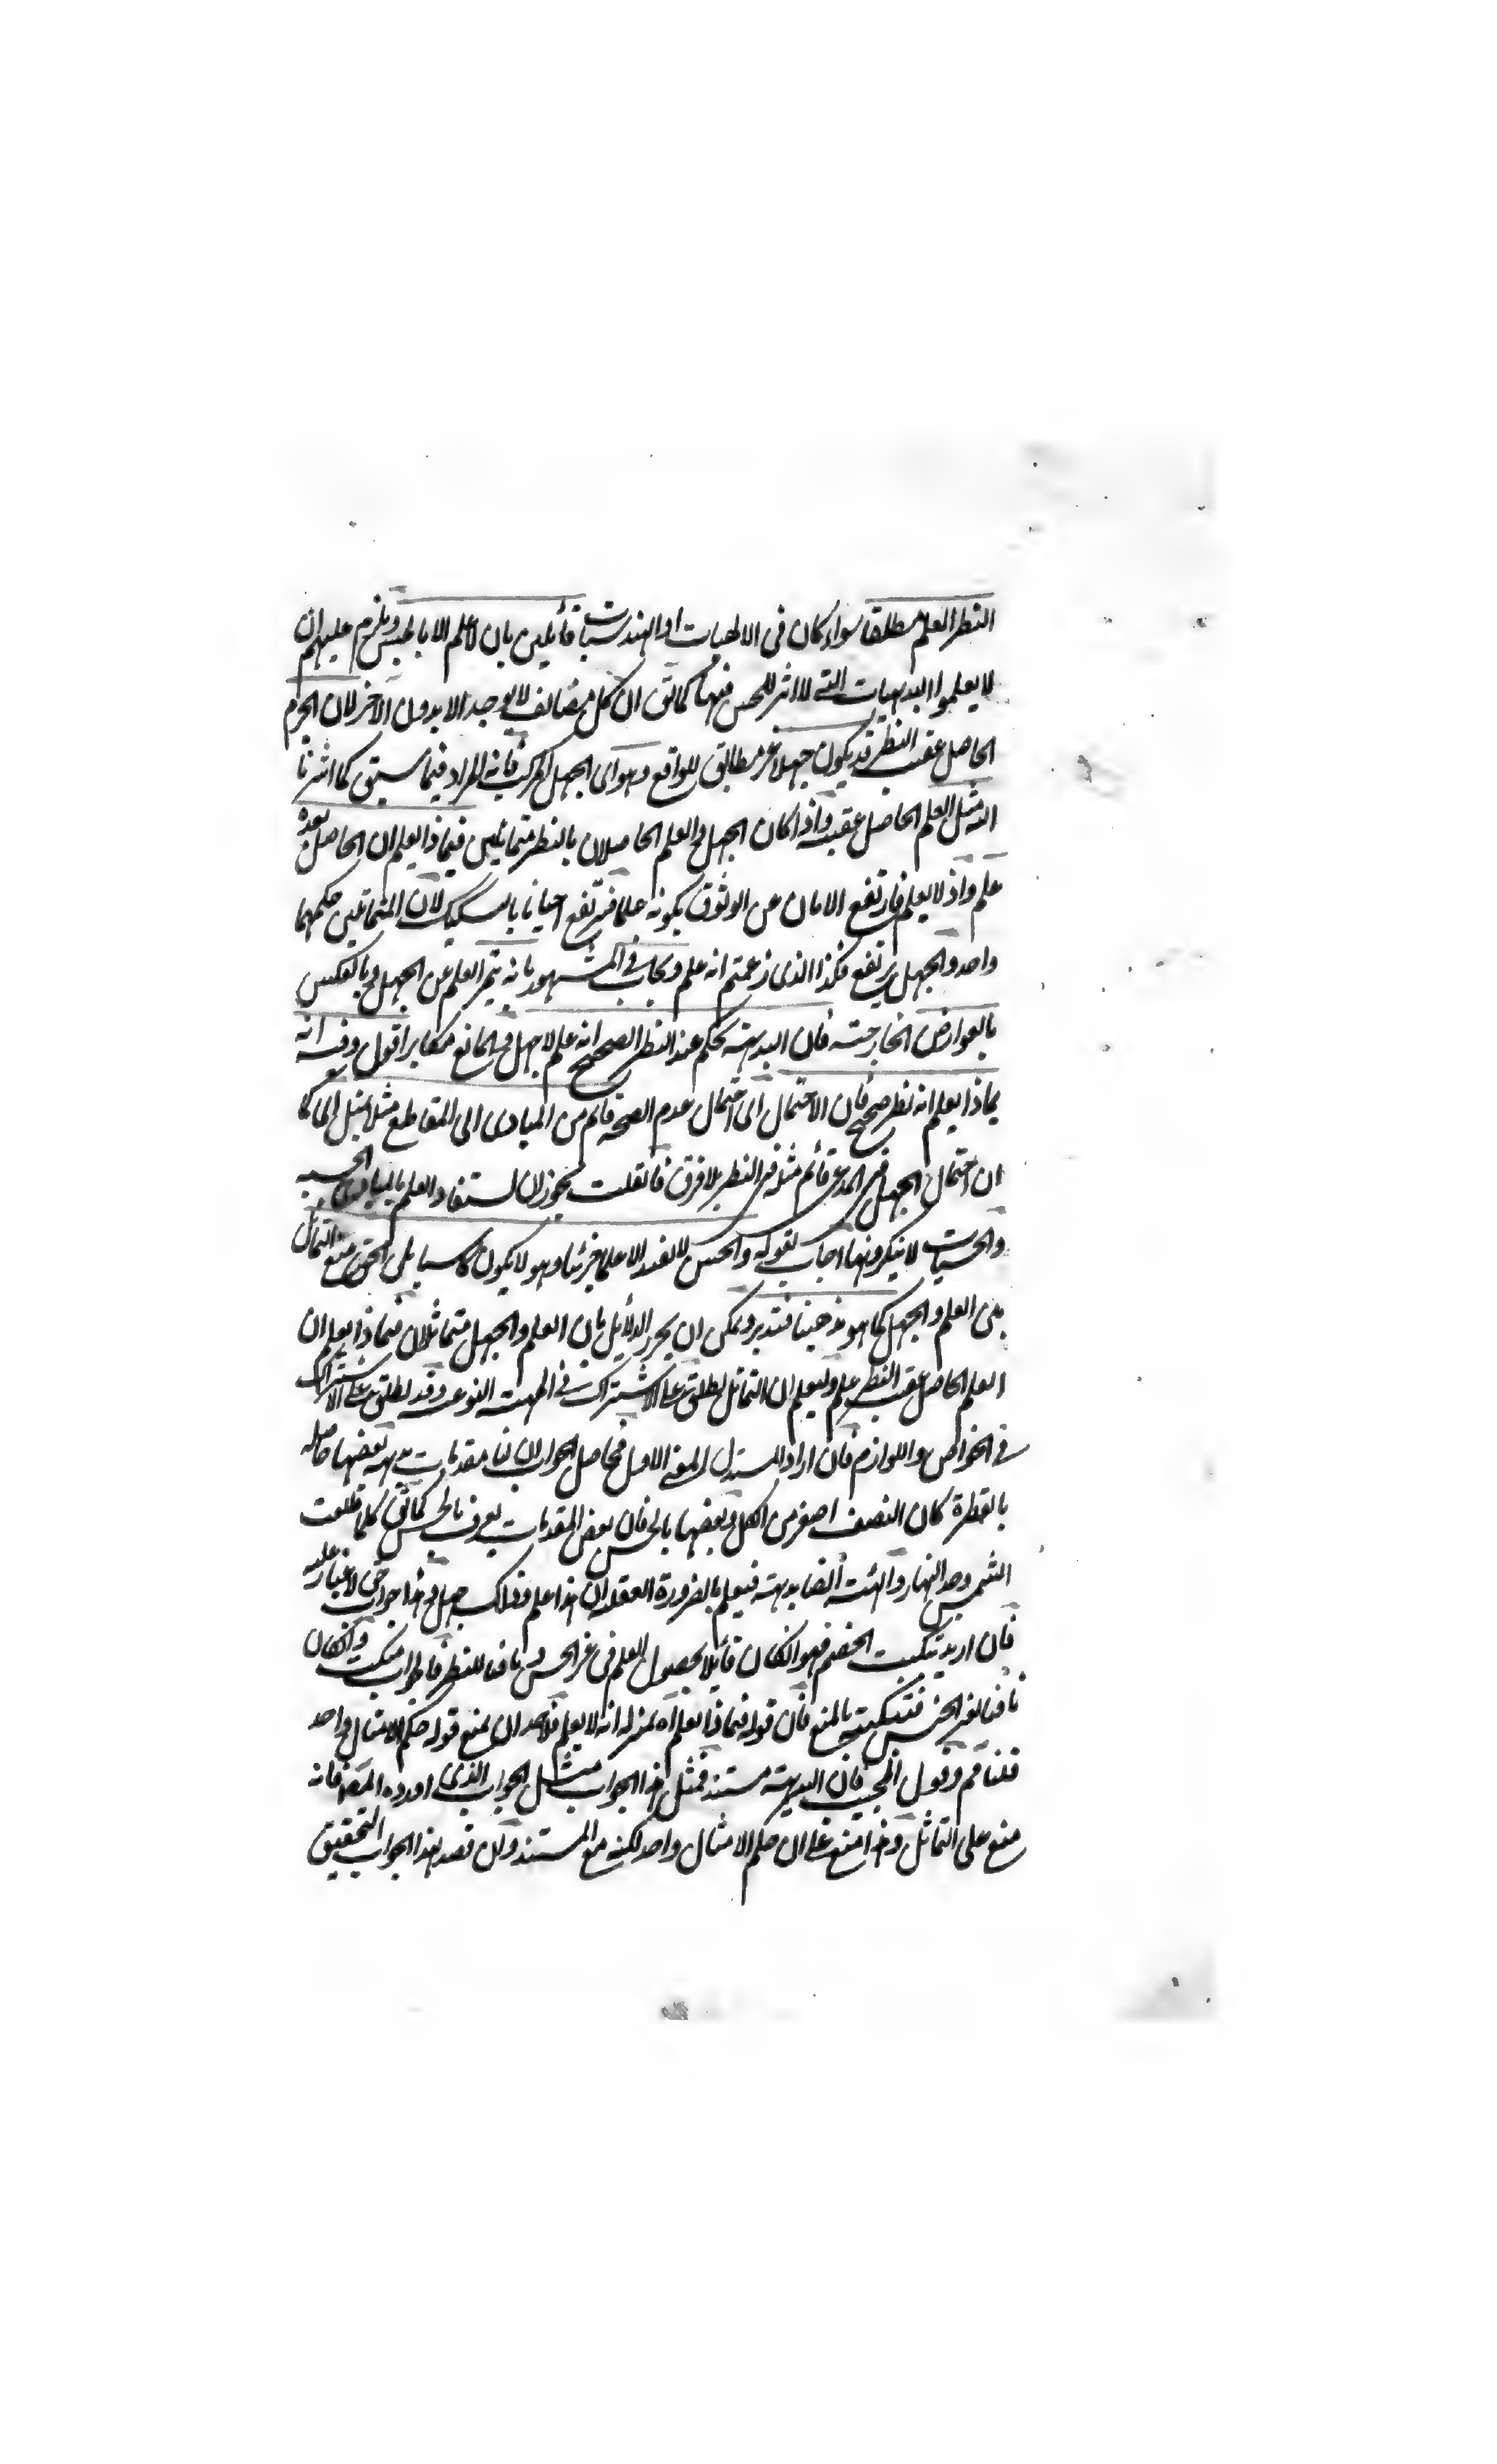 النظر العلم مطلقا سواء كان فى الالهيات او الهندسيات قائلين بان لا علم الا بالحس ويلزم عليهم ان
لا يعلموا البديهيات التى لا اثر للحس فيها كما تق ان كل مضائف لا يوجد الا بدون الآخر لان الجزم
الحاصل عقيب النظر قد يكون جهلا غير مطابق للواقع وهو اى الجهل المركب فانه المراد فيما سبق كما اشرنا
اليه مثل العلم الحاصل عقيبه واذا كان الجهل والعلم الحاصلان بالنظر متماثلين فبماذا يعلم ان الحاصل بعده
علم واذ لا يعلم فارتفع الامان عن الوثوق بكونه علما فيرتفع احيانا بالتشكيك لان المتماثلين حكمهما
واحد والجهل يرتفع فكذا الذى زعمتم انه علم ويجاب فى المشهور بانه يتميز العلم عن الجهل وبالعكس
بالعوارض الخارجية فان البديهة تحكم عند النظر الصحيح انه علم لا جهل والمانع مكابر اقول وفيه انه
بماذا يعلم انه نظر صحيح فان الاحتمال اى احتمال عدم الصحة قائم من المبادى الى المقاطع مثلا بمثل اى كما
ان احتمال الجهل فى المدعى قائم مثله فى النظر بلا فرق فان قلت يجوز ان يستفاد العلم بالمبادى الحسية
والحسيات لا ينكرونها اجاب بقوله والحس لا يفيد الا علما جزئيا وهو لا يكون كاسبا بل الحق منع التماثل
بين العلم والجهل كما هو مذهبنا فتدبر ويمكن ان يحرر الدلائل بان العلم والجهل متماثلان فبماذا يعلم ان
العلم الحاصل عقيب النظر علم وليعلم ان التماثل يطلق على الاشتراك فى المهية النوعية وقد يطلق على الاشتراك
فى الخواص واللوازم فان اراد المستدل المعنى الاول فحاصل الجواب ان لنا مقدمات بديهية بعضها حاصله
بالفطرة كان النصف اصغر من الكل وبعضها بالحس فان بعض المقدمات يعرف بالحس كما تق كلما طلعت
الشمس وجد النهار والهيئة ايضا بديهية فيعلم بالضرورة العقلية ان هذا علم وذلك جهل وهذا جواب حق لا غبار عليه
فان اريد تبكيت الخصم فهو ان كان قائلا بحصول العلم فى غير الحس ونافيا للنظر فالجواب مبكت وان كان
نافيا لغير الحس فتبكيته بالمنع فان قوله فبماذا يعلم اه بمنزلة انه لا يعلم فلاحد ان يمنع قوله حكم الامثال واحد
قلنا مم وقول المجيب فان البديهة مستند فمثل هذا الجواب مثل الجواب الذى اورده المص فانه
منع على التماثل وهذا منع على ان حكم الامثال واحد لكنه مع المستند وان قصد بهذا الجواب التحقيق